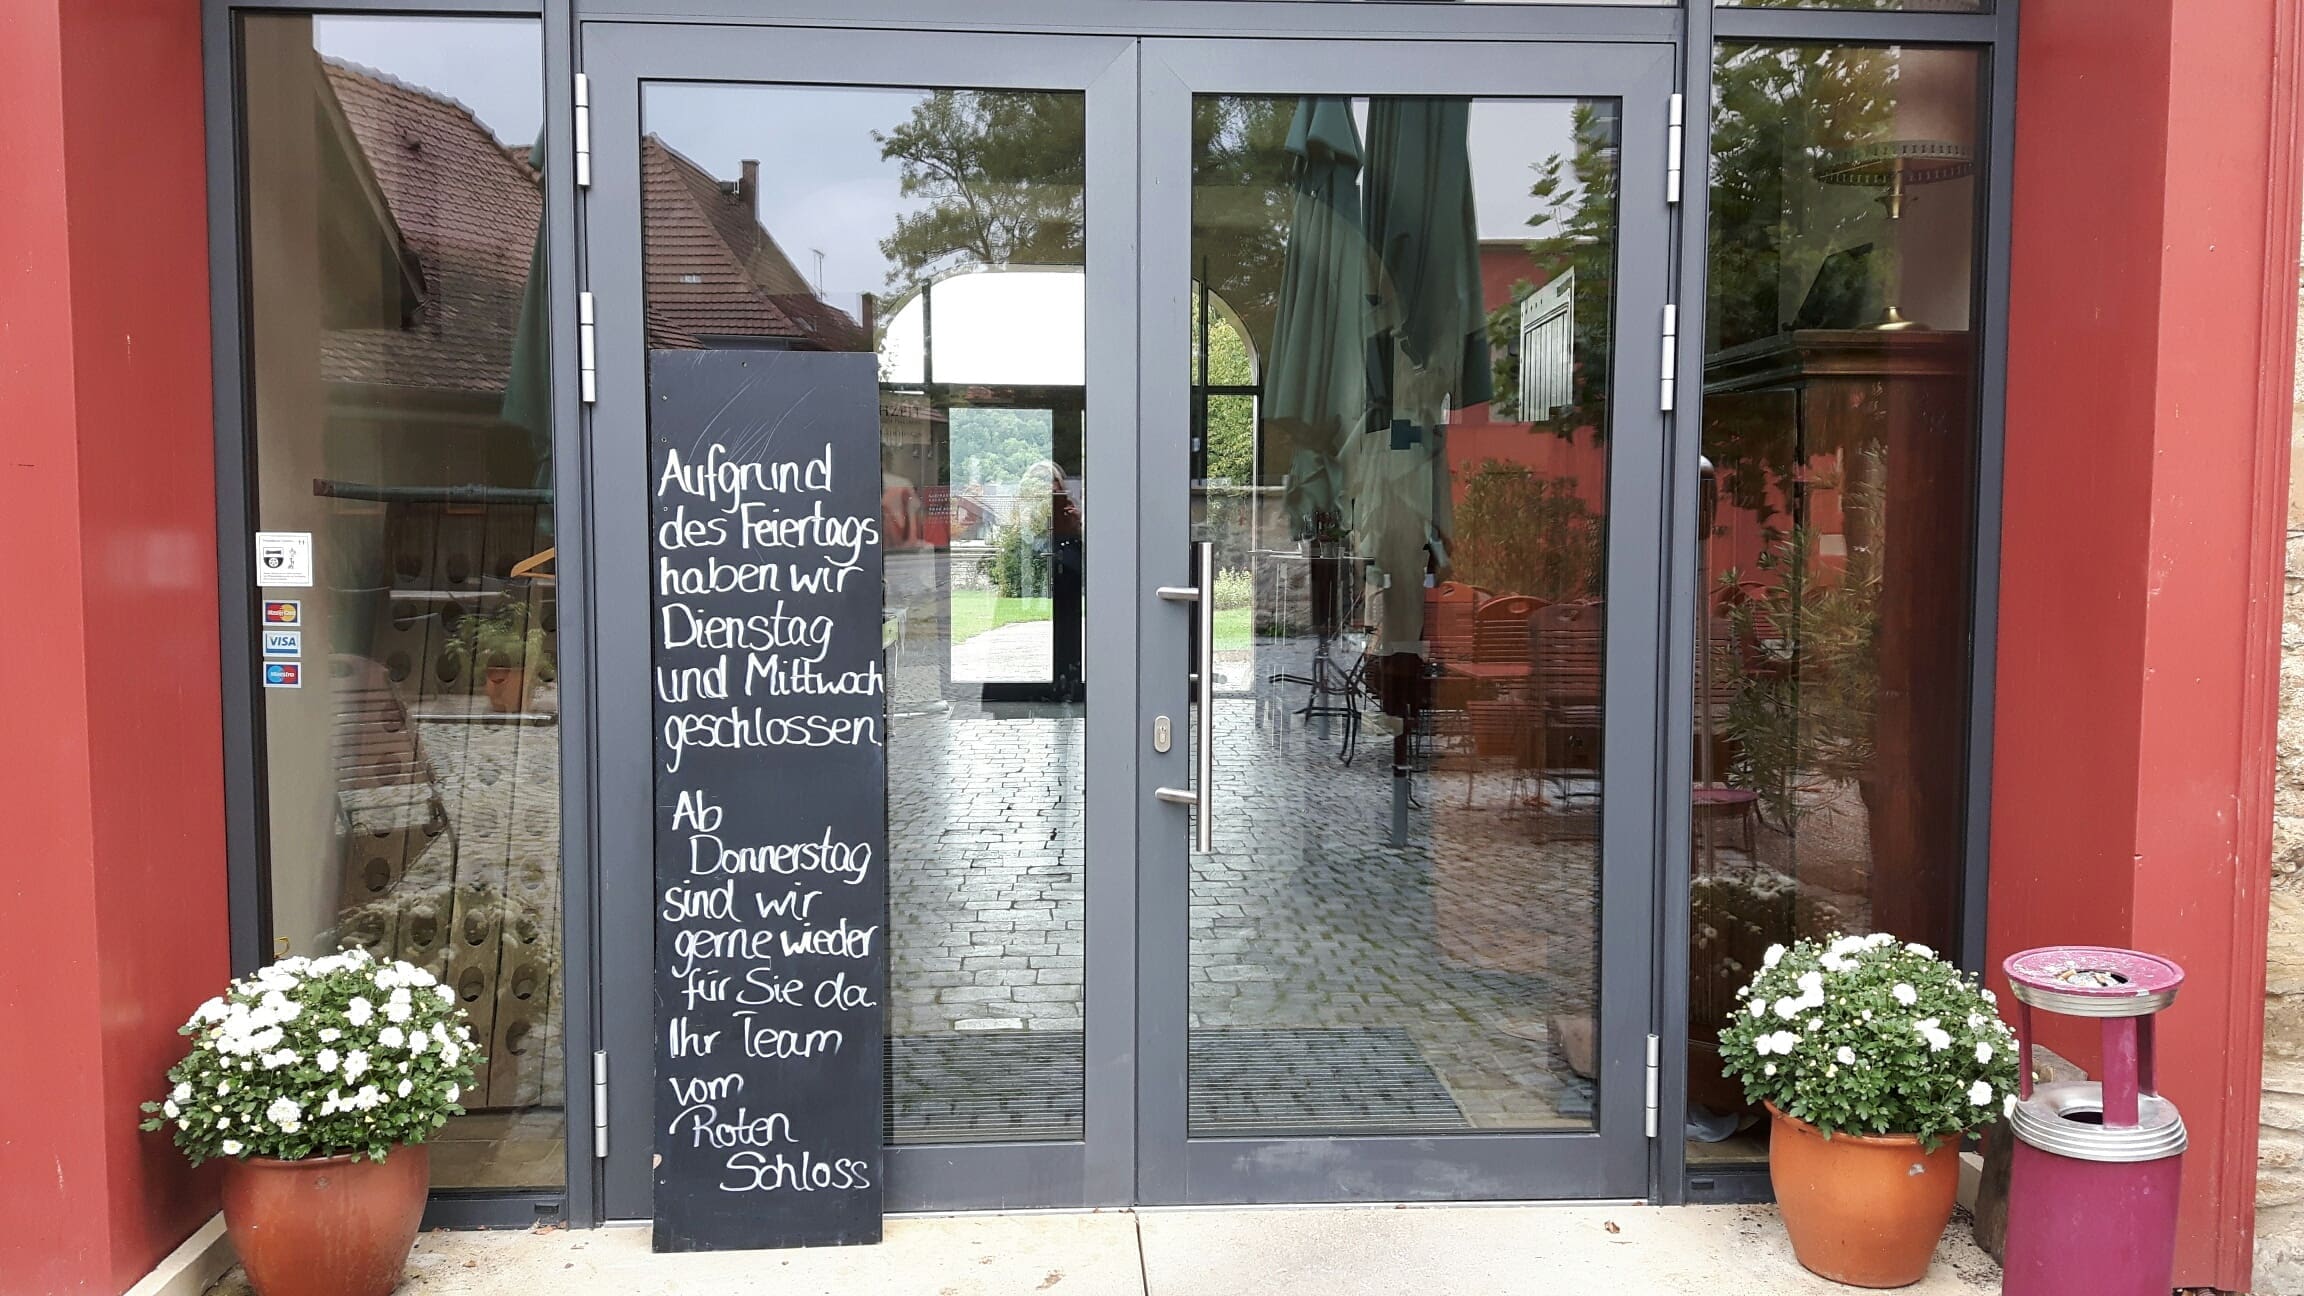 Aufgrund
des Feiertags
haben wir
Dienstag
und Mittwoch
geschlossen.
Ab
Donnerstag
sind wir
gerne wieder
für Sie da.
Ihr Team
vom
Roten
Schloss
MasterCard
VISA
Maestro